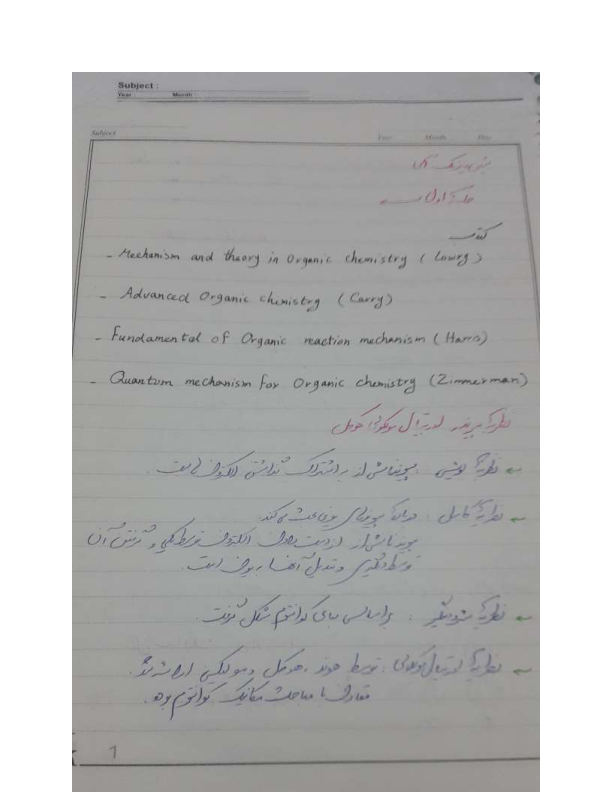 Subject :
Year : Month :
Subject Year Month Day
شیمی فیزیک آلی
جلسه اول
کتاب
- Mechanism and theory in Organic chemistry ( Lowry )
- Advanced Organic chemistry (Carry)
- Fundamental of Organic reaction mechanism ( Harris)
- Quantum mechanism for Organic chemistry (Zimmerman)
نظریه پیوند اوربیتال مولکولی هوکل
نظریه لوئیس : پیوند ناشی از به اشتراک گذاشتن الکترون هاست.
نظریه کاسل : درباره پیوندهای یونی بحث می‌کند.
پیوند ناشی از از دست دادن الکترون توسط یکی و گرفتن آن
توسط دیگری و تبدیل آنها به یون است.
نظریه شرودینگر : براساس مبانی کوانتوم شکل گرفت.
نظریه اوربیتال مولکولی : توسط هوند ، هوکل و مولیکن ارائه شد.
متقارن با مباحث مکانیک کوانتوم بود.
1